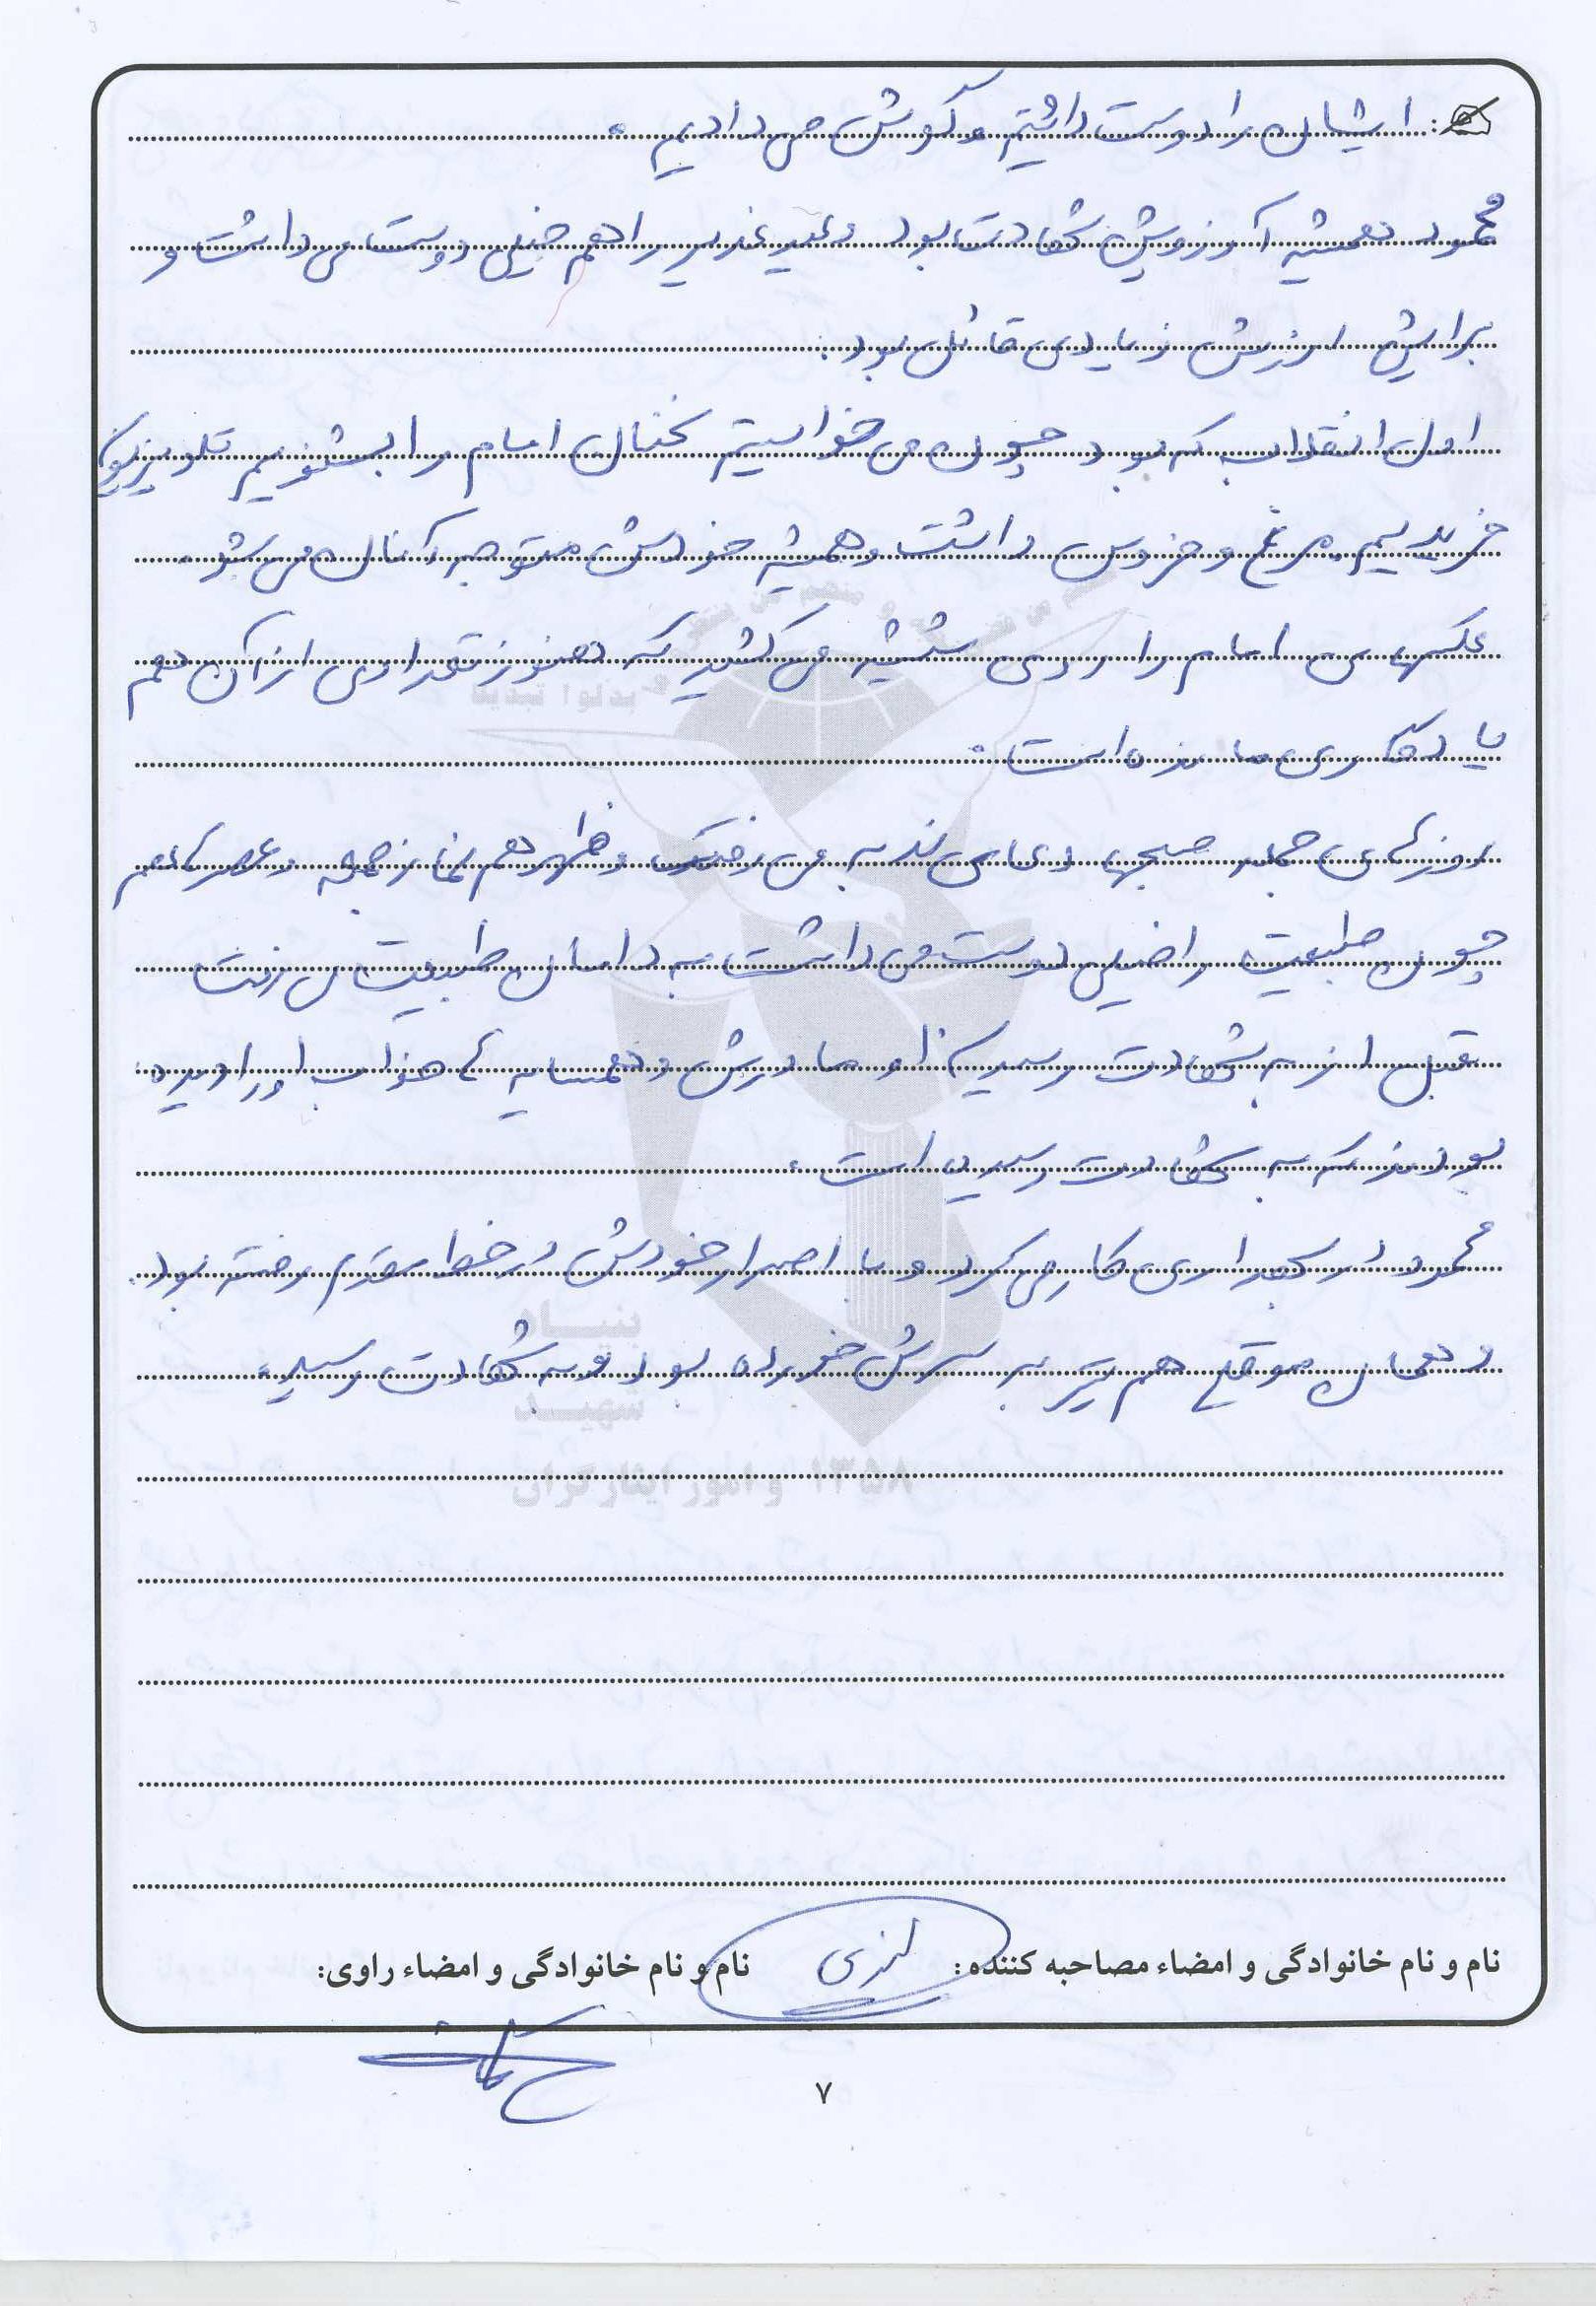 ایشان را دوست داشتیم و گوش می دادیم.
محمود همیشه آرزویش شهادت بود و عید غدیر را هم خیلی دوست می داشت و
برایش ارزش زیادی قائل بود.
اول انقلاب که بود چون می خواستیم سخنان امام را بشنویم تلویزیون
خریدیم. مرغ و خروس داشت و همیشه خودش متوجه آنان می شد.
عکسهای امام را روی شیشه می کشید که هنوز تعدادی از آن هم
یادگاری مانده است.
روزهای جمعه صبحها دعای ندبه می رفت و ظهر هم نماز جمعه و عصرها هم
چون طبیعت را خیلی دوست می داشت به دامان طبیعت می رفت
قبل از به شهادت رسیدن او مادرش و همسایه ها خواب او را دیده
بودند که به شهادت رسیده است.
محمود در بهداری کار می کرد و با اصرار خودش در خط مقدم رفته بود.
و همان موقع هم تیر به سرش خورده بود و به شهادت رسید.
بنیاد
شهید
و امور ایثارگران ۱۳۵۸
نام و نام خانوادگی و امضاء مصاحبه کننده: نام و نام خانوادگی و امضاء راوی:
۷